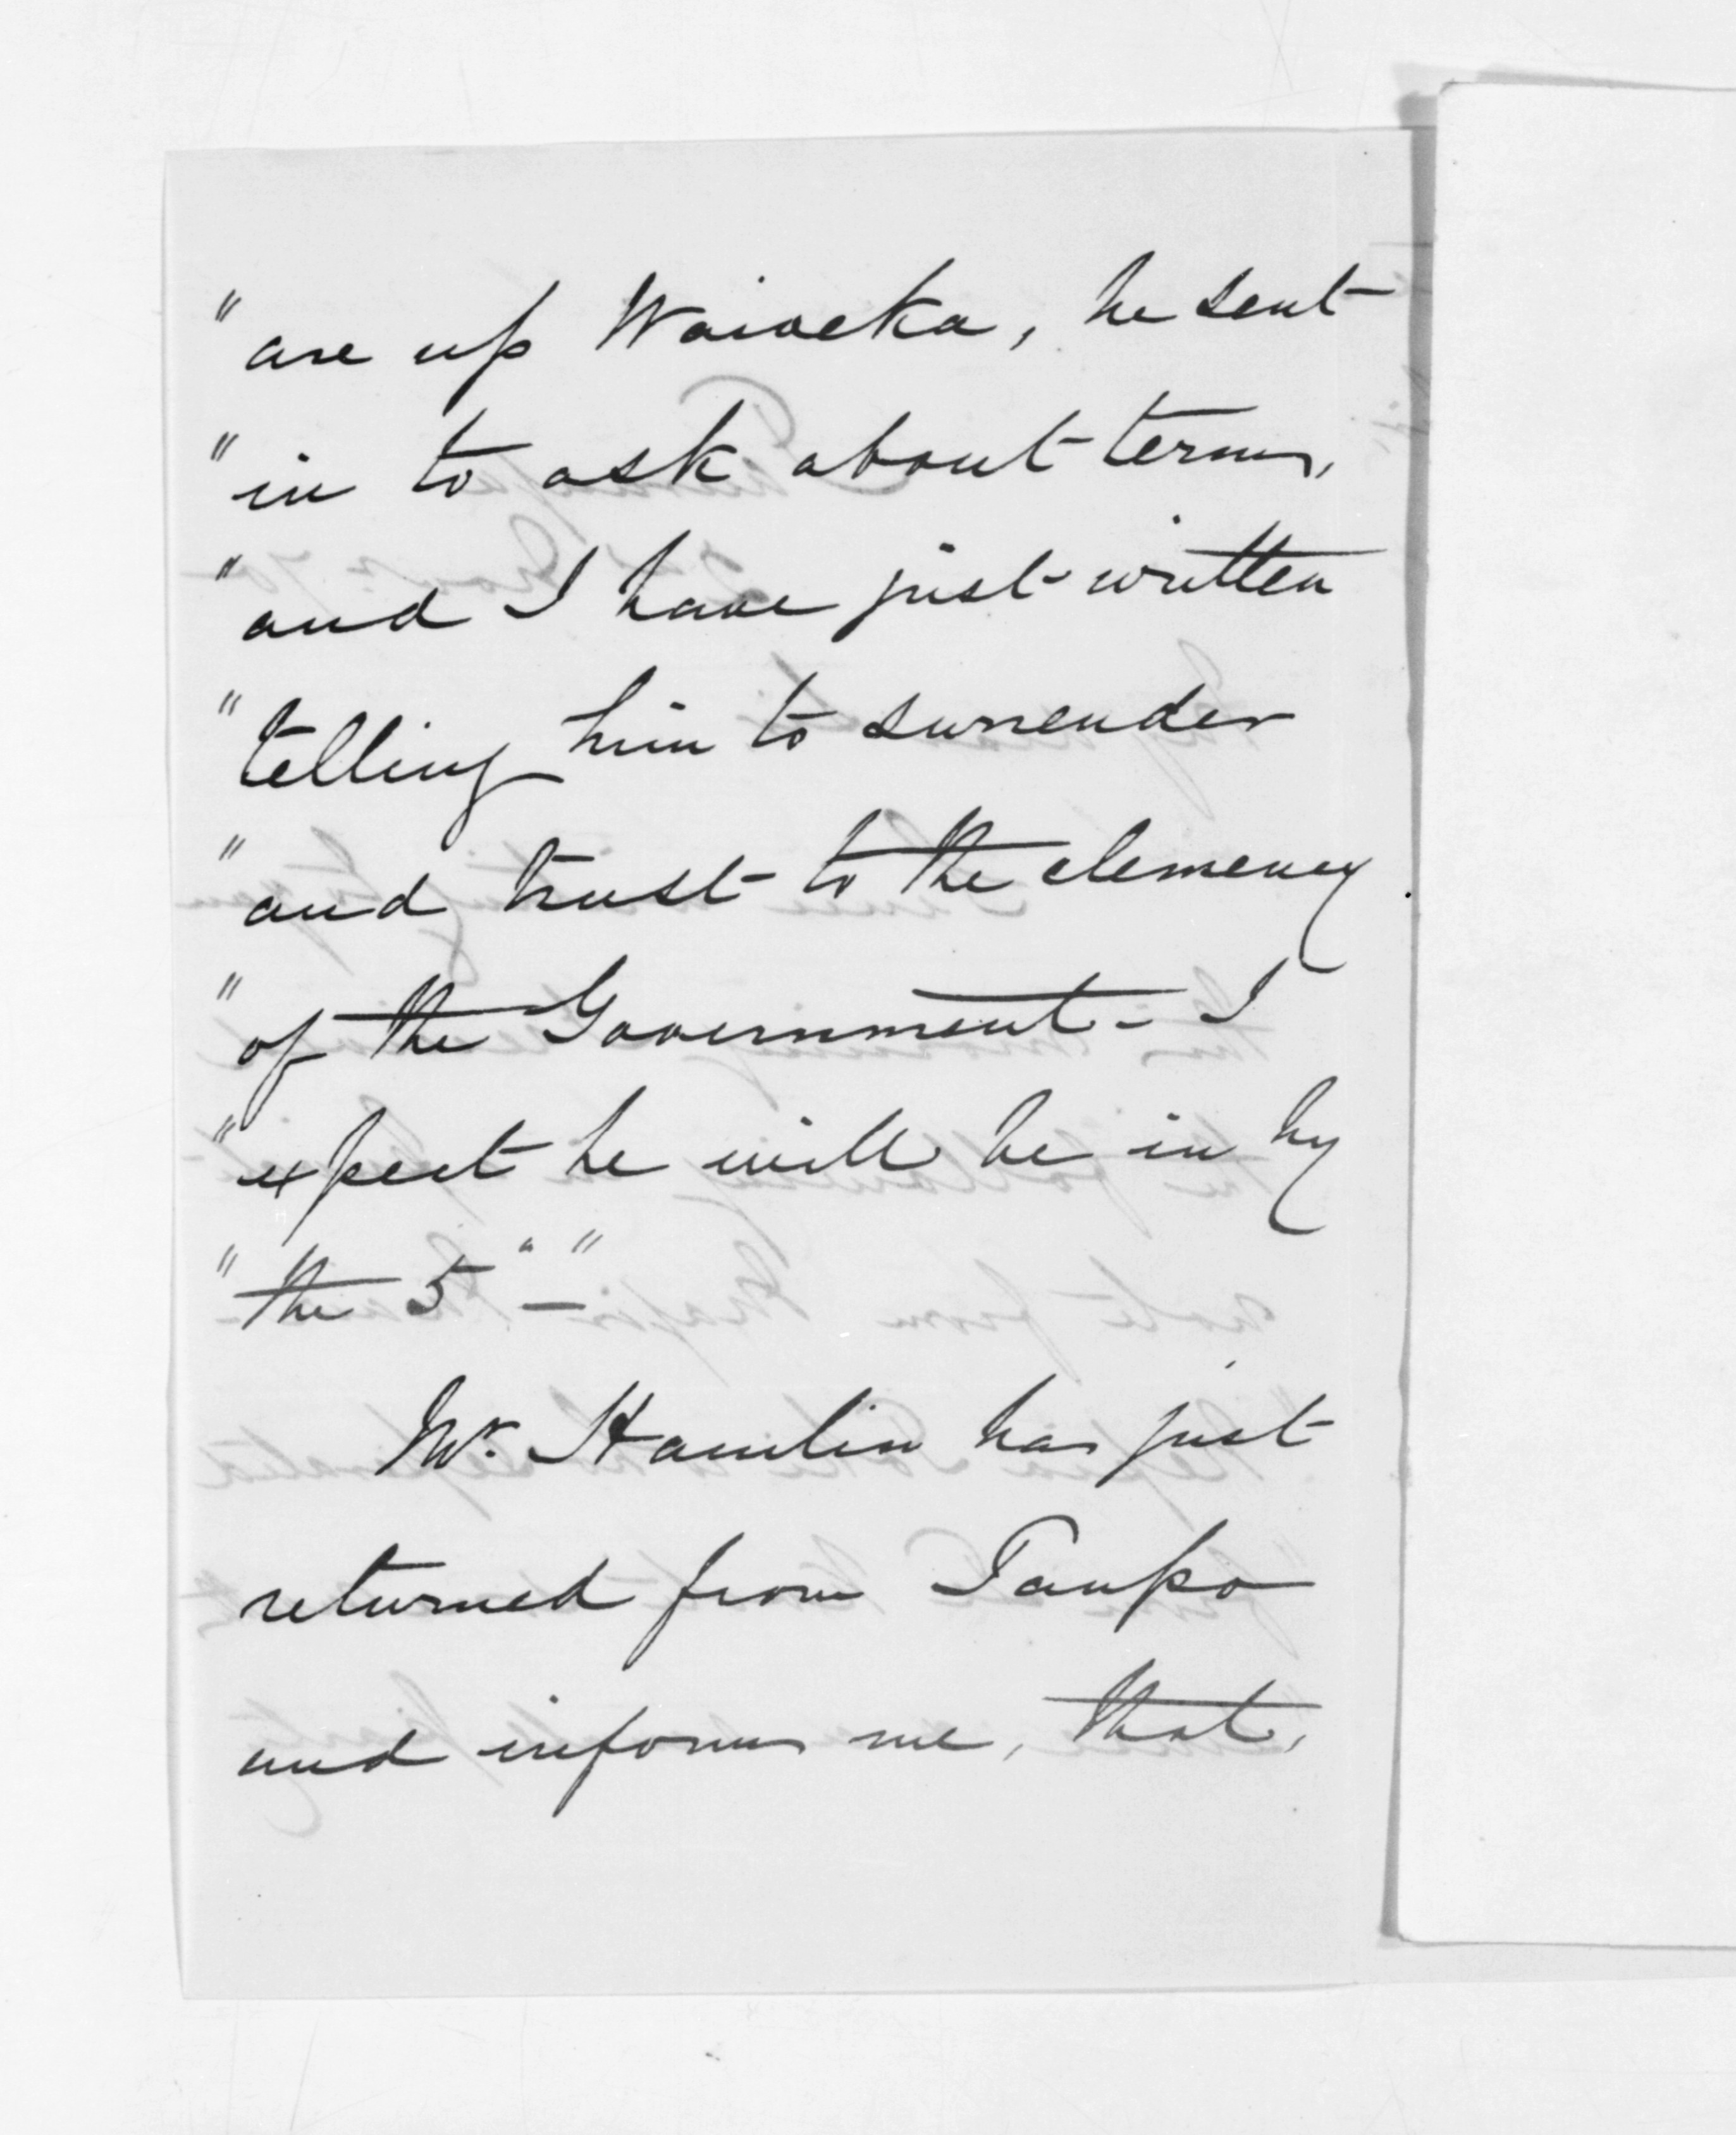 "are up Waioeka, he sent
"in to ask about terms,
"and I have just written
"telling him to surrender
"and trust to the clemency
"of the Government - I
"expect he will be in by
"the 5" — "
Mr. Hamlin has just
returned from Taupo
and informs me, that,